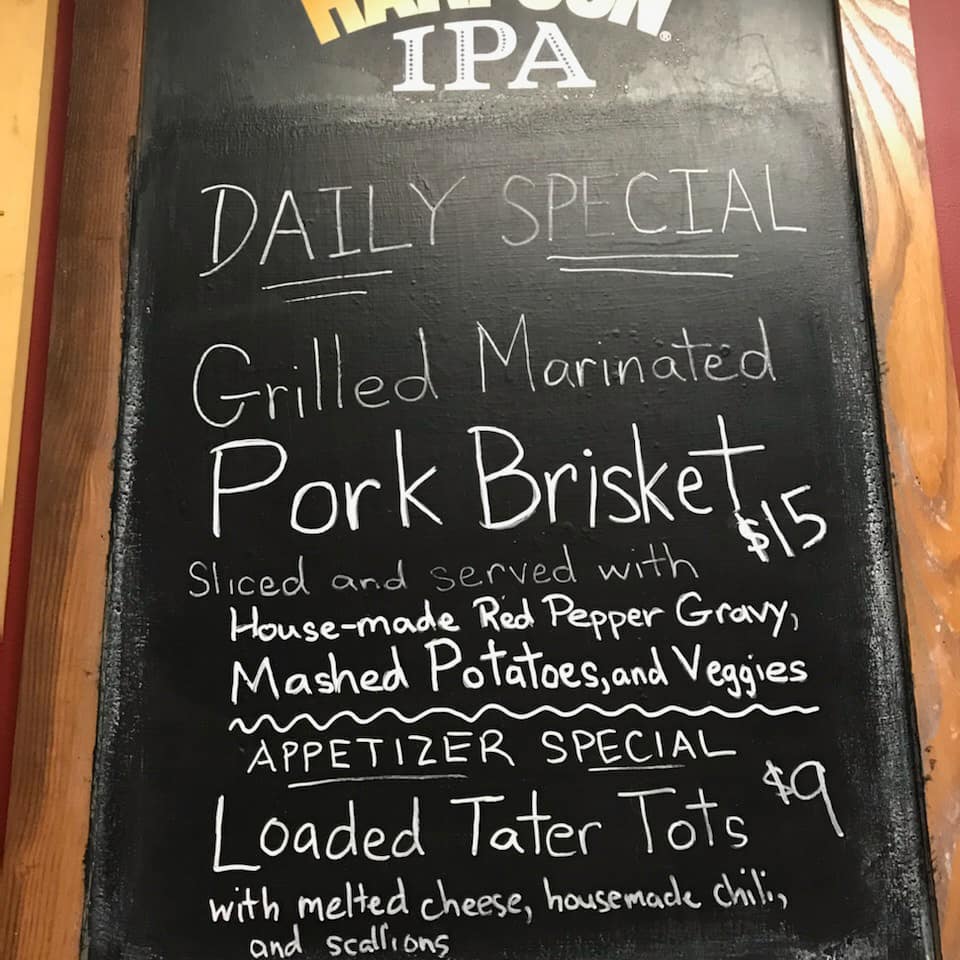 HARPOON®
IPA
DAILY SPECIAL
Grilled Marinated
Pork Brisket
$15
Sliced and served with
House-made Red Pepper Gravy,
Mashed Potatoes, and Veggies
APPETIZER SPECIAL
$9
Loaded Tater Tots
with melted cheese, housemade chili,
and scallions